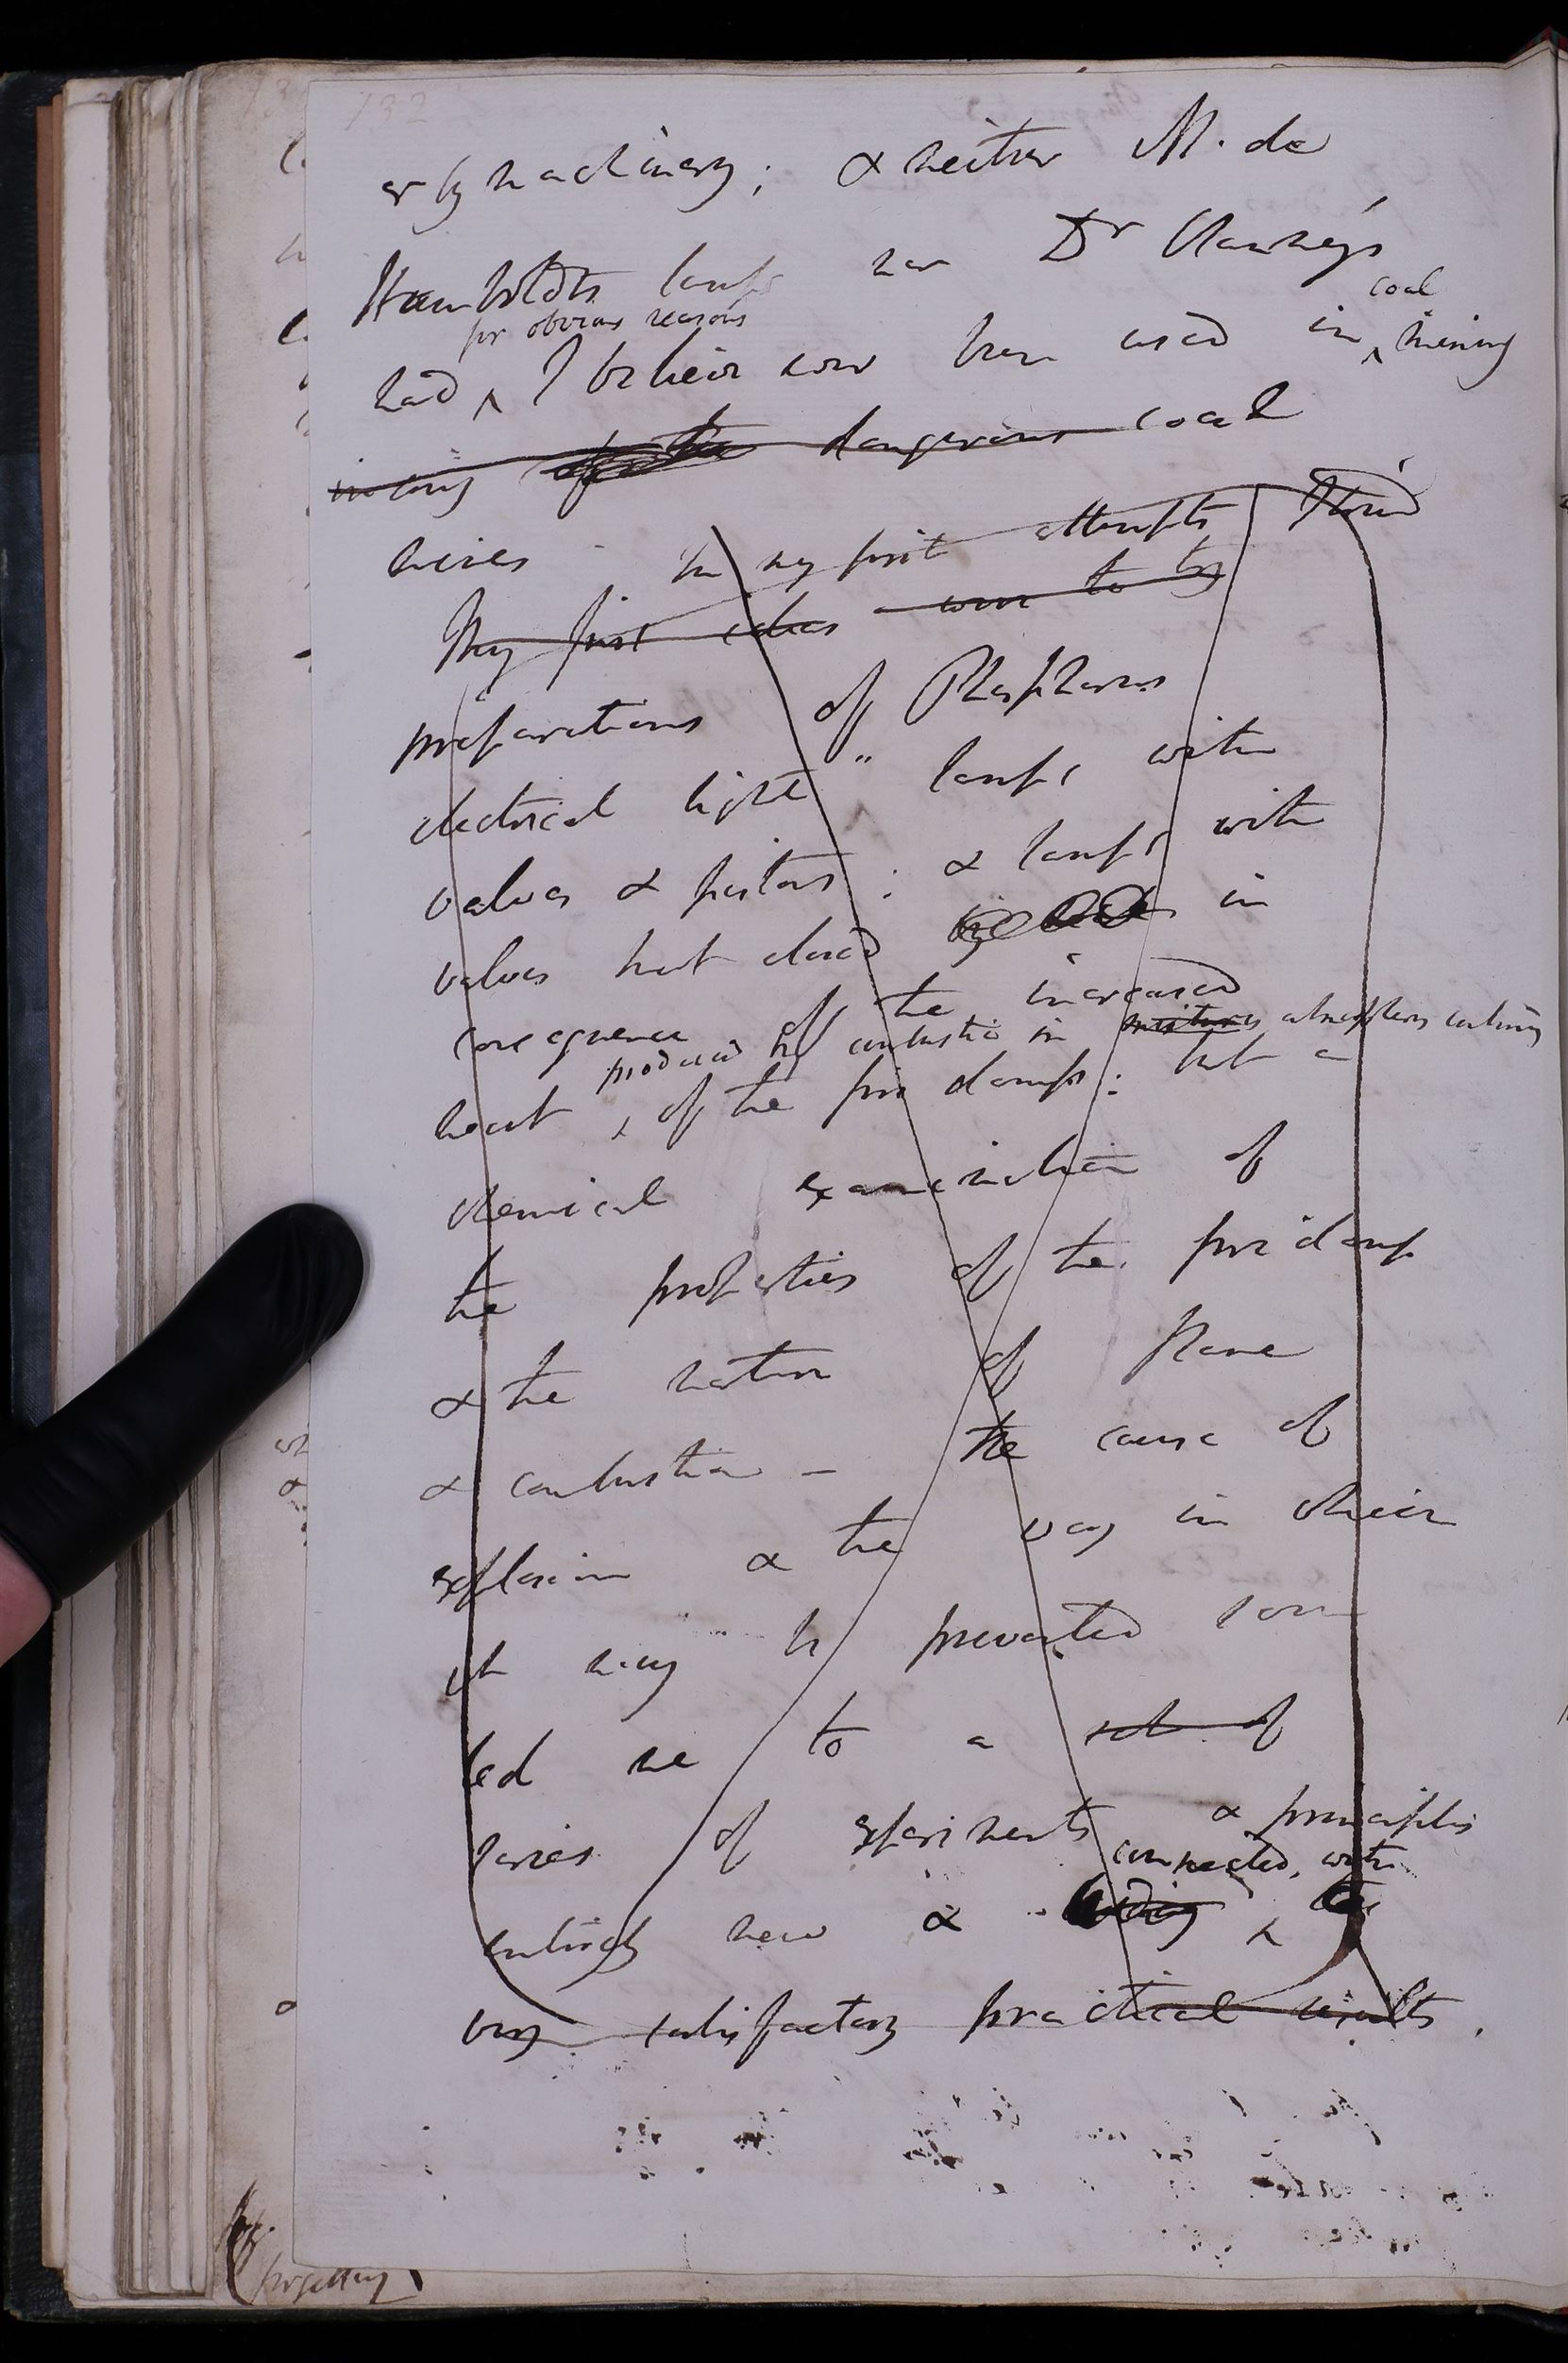 132
or by machinery; & neither M. de
Humboldts lamp nor Dr Clanny's
for obvious reasons coal
had ^ I believe ever been used in ^ mining
in any dangerous coal
mines - In my first attempts, I tried
My first ideas were to try
preparations of Phosphorus
electrical light " lamps with
valves & pistons ; & lamps with
valves that closed in
consequence of the increased
produced by combustion in mixtures atmosphere containing
heat ^ of the fire damp: but a
chemical examination of
the properties of the fire damp
& the nature of flame
& combustion - the cause of
explosion & the way in which
it may be prevented soon
led me to a set of
series of experiments & principles
connected, with
entirely new & leading ^
very satisfactory practical results.
forgetting